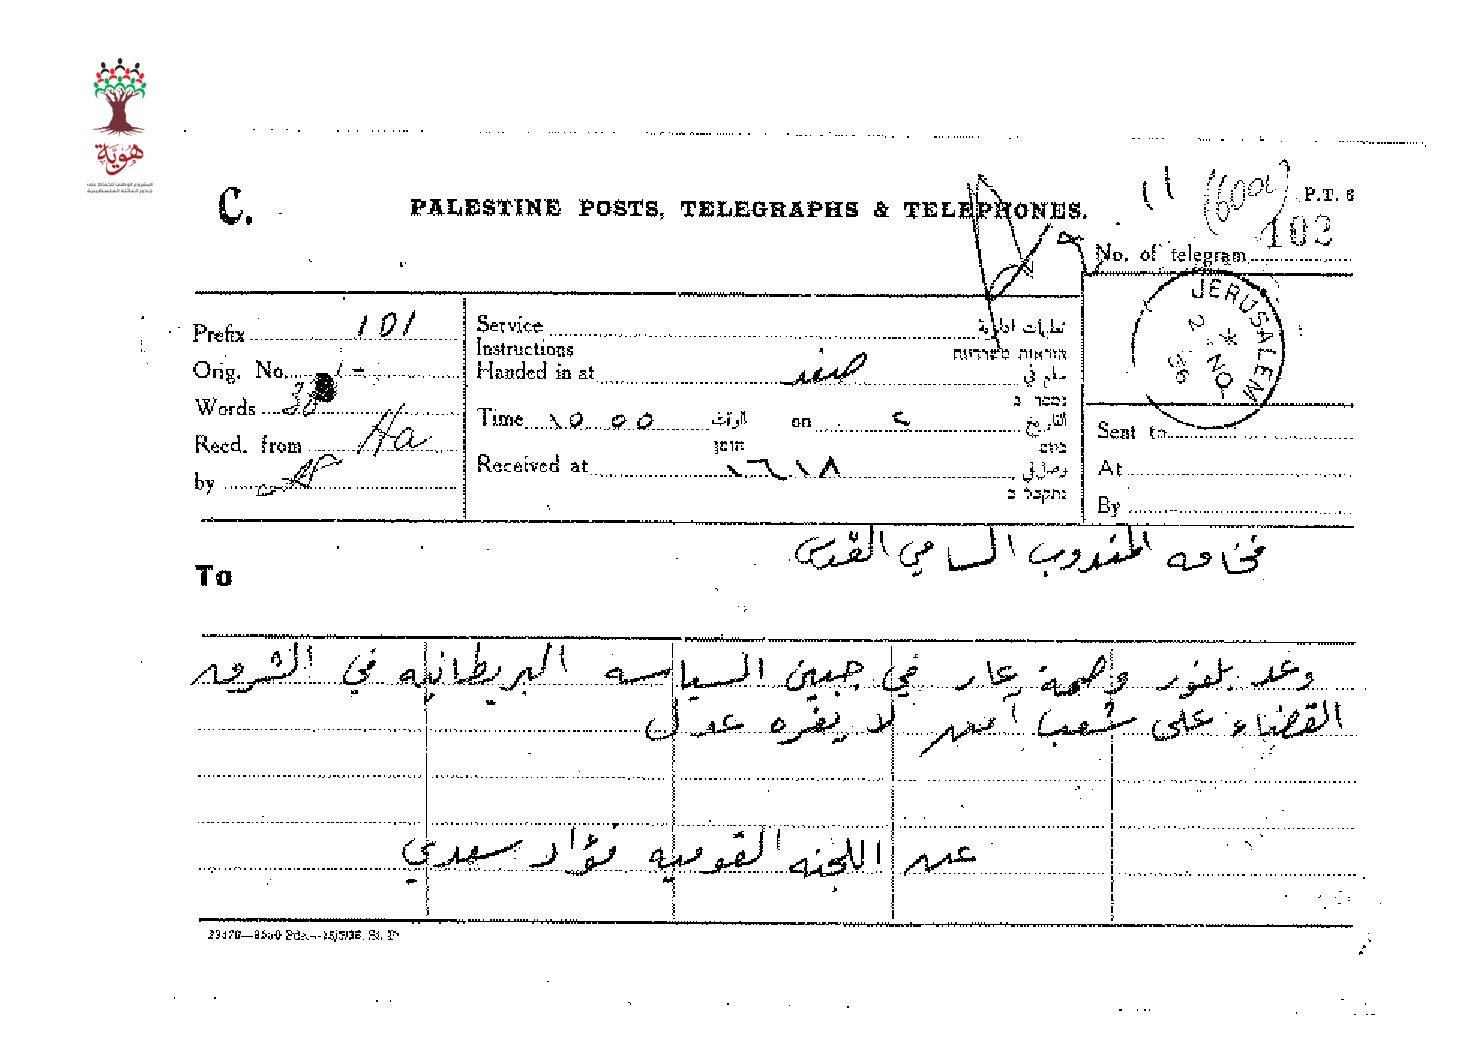 هوية
المشروع الوطني للحفاظ على
جذور العائلة الفلسطينية
C.
PALESTINE POSTS, TELEGRAPHS & TELEPHONES.
P.T. 6
No. of telegram 103
Prefix 101
Orig. No.
Words
Recd. from Ha
by
Service
Instructions
תוראות משרדיות
Handed in at صفد سلم في
נמסר ב
Time ١٥ ٥٥ الوقت on ٢ التاريخ
הזמן ביום
Received at ١٦١٨ وصل في
נתקבל ב
JERUSALEM
2 NO
36
Sent to
At
By
To
فخامه المندوب السامي القدس
وعد بلفور وصمة عار في جبين السياسه البريطانيه في الشرق
القضاء على شعب آمن لا يقره عدل
عن اللجنه القوميه فؤاد سعدي